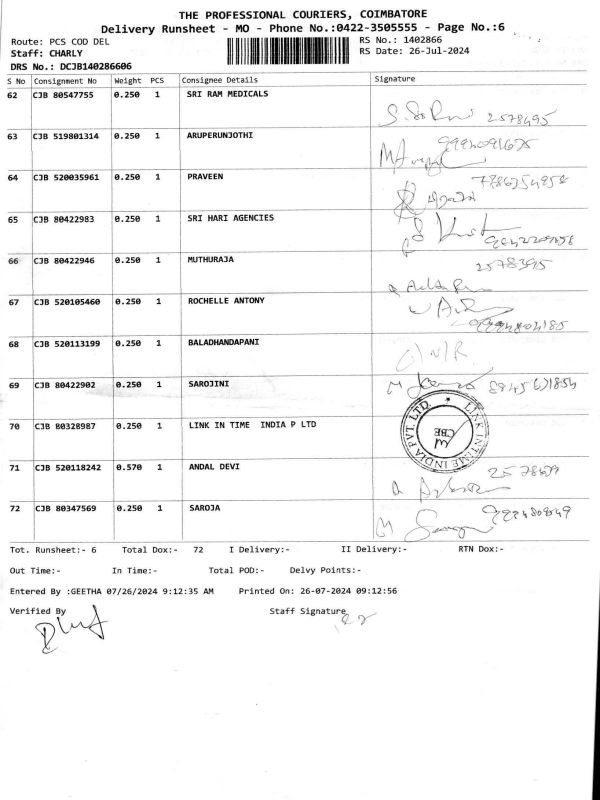 THE PROFESSIONAL COURIERS, COIMBATORE
Delivery Runsheet - MO - Phone No.:0422-3505555 - Page No.:6
Route: PCS COD DEL RS No.: 1402866
Staff: CHARLY RS Date: 26-Jul-2024
DRS No.: DCJB140286606
S No Consignment No Weight PCS Consignee Details Signature
62 CJB 80547755 0.250 1 SRI RAM MEDICALS
2578495
63 CJB 519801314 0.250 1 ARUPERUNJOTHI
64 CJB 520035961 0.250 1 PRAVEEN
65 CJB 80422983 0.250 1 SRI HARI AGENCIES
66 CJB 80422946 0.250 1 MUTHURAJA
2578395
67 CJB 520105460 0.250 1 ROCHELLE ANTONY
68 CJB 520113199 0.250 1 BALADHANDAPANI
69 CJB 80422902 0.250 1 SAROJINI
70 CJB 80328987 0.250 1 LINK IN TIME INDIA P LTD
LINK INTIME INDIA PVT. LTD.
CBE
71 CJB 520118242 0.570 1 ANDAL DEVI
72 CJB 80347569 0.250 1 SAROJA
Tot. Runsheet:- 6 Total Dox:- 72 I Delivery:- II Delivery:- RTN Dox:-
Out Time:- In Time:- Total POD:- Delvy Points:-
Entered By :GEETHA 07/26/2024 9:12:35 AM Printed On: 26-07-2024 09:12:56
Verified By Staff Signature